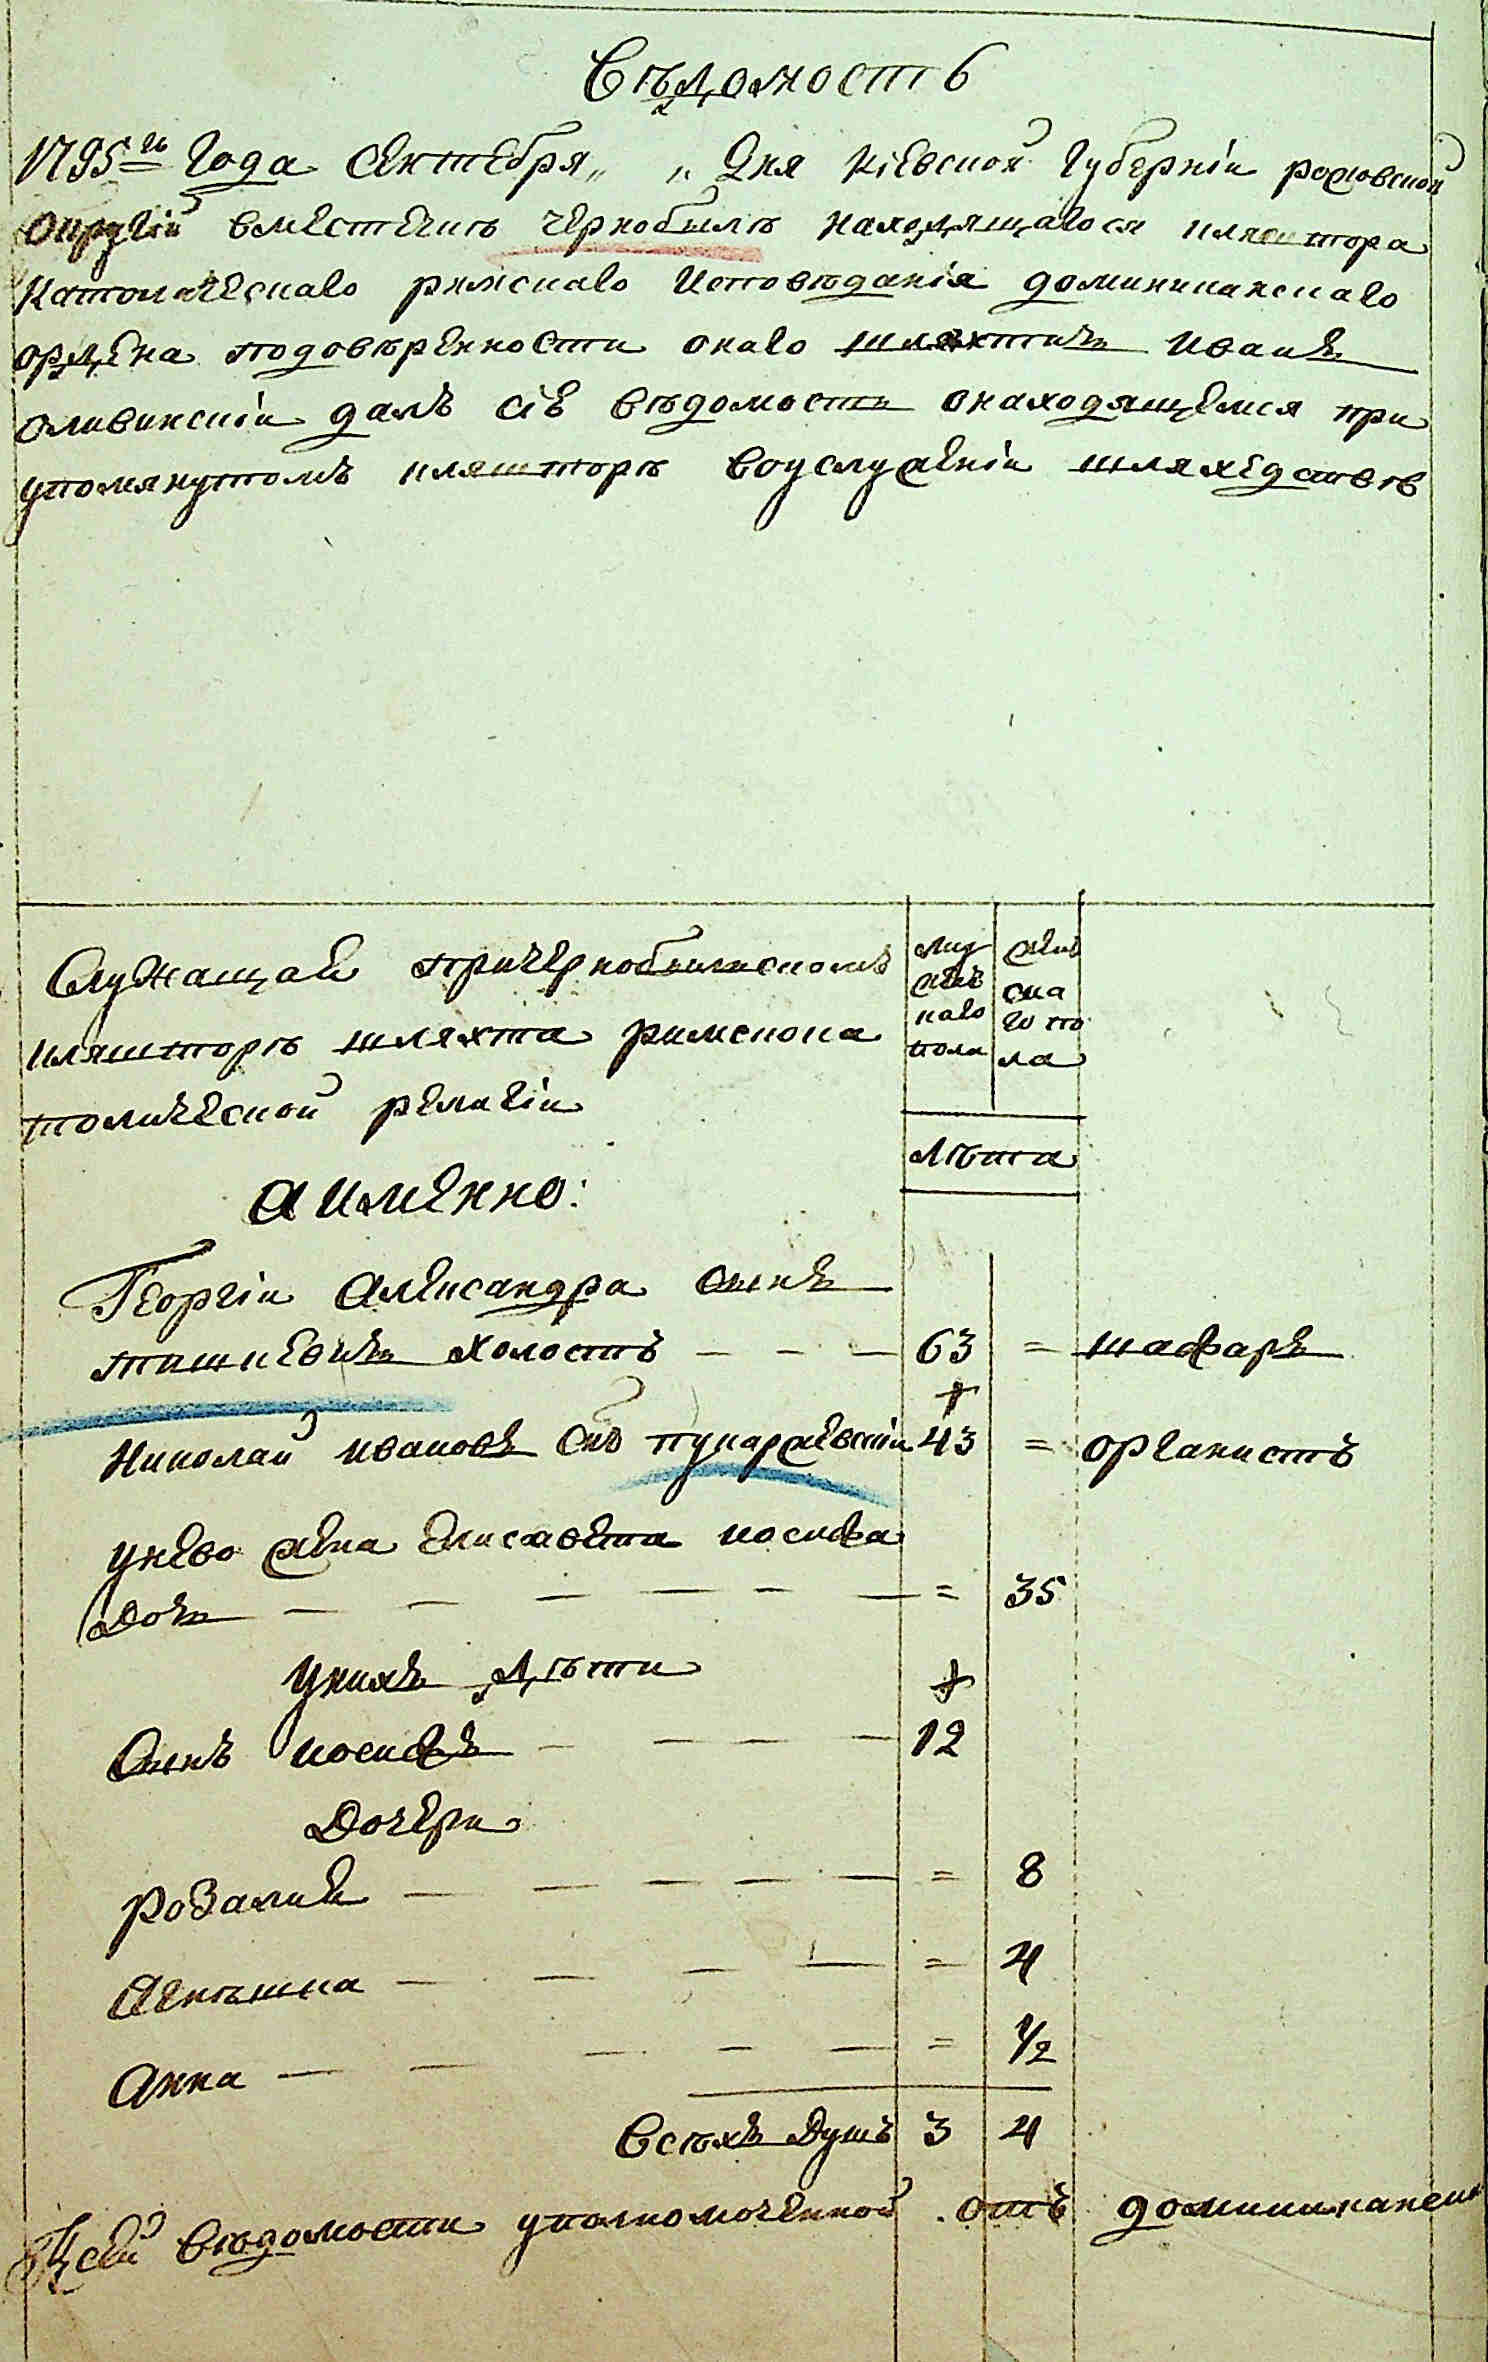 Вѣдомость
1795го Года Сентебря „ „ Дня Кіевской Губерніи
Округи вместечкѣ чернобылѣ находящагося кляштора
Католическаго римскаго Исповѣданія доминиканскаго
ордена подовѣренности онаго шляхтичъ Иванъ
Оливинскіи далъ сіѣ вѣдомость онаходящемся при
упомянутомъ кляшторѣ воуслуженіи шляхедствѣ
Служащаѣ причернобыльскомъ
кляшторѣ шляхта римскока
толической религіи
муж жен
жес ска
каго го по
пола ла
Лѣта
а именно:
Георгіи Александра сынъ
тишкевичъ холостъ — — — 63 = шафаръ
Николай ивановъ Снъ пукаржевскіи 43 = органистъ
унево жена Елисавета иосифа
Дочь — — — — — — = 35
унихъ Дѣти
Сынъ иосифъ — — — — 12
Дочери
розалиѣ — — — — — = 8
Агнѣшка — — — — = 4
Анна — — — — — = 1/2
Всѣхъ Душъ 3 4
Ксей Вѣдомости уполномоченной отъ доминиканск